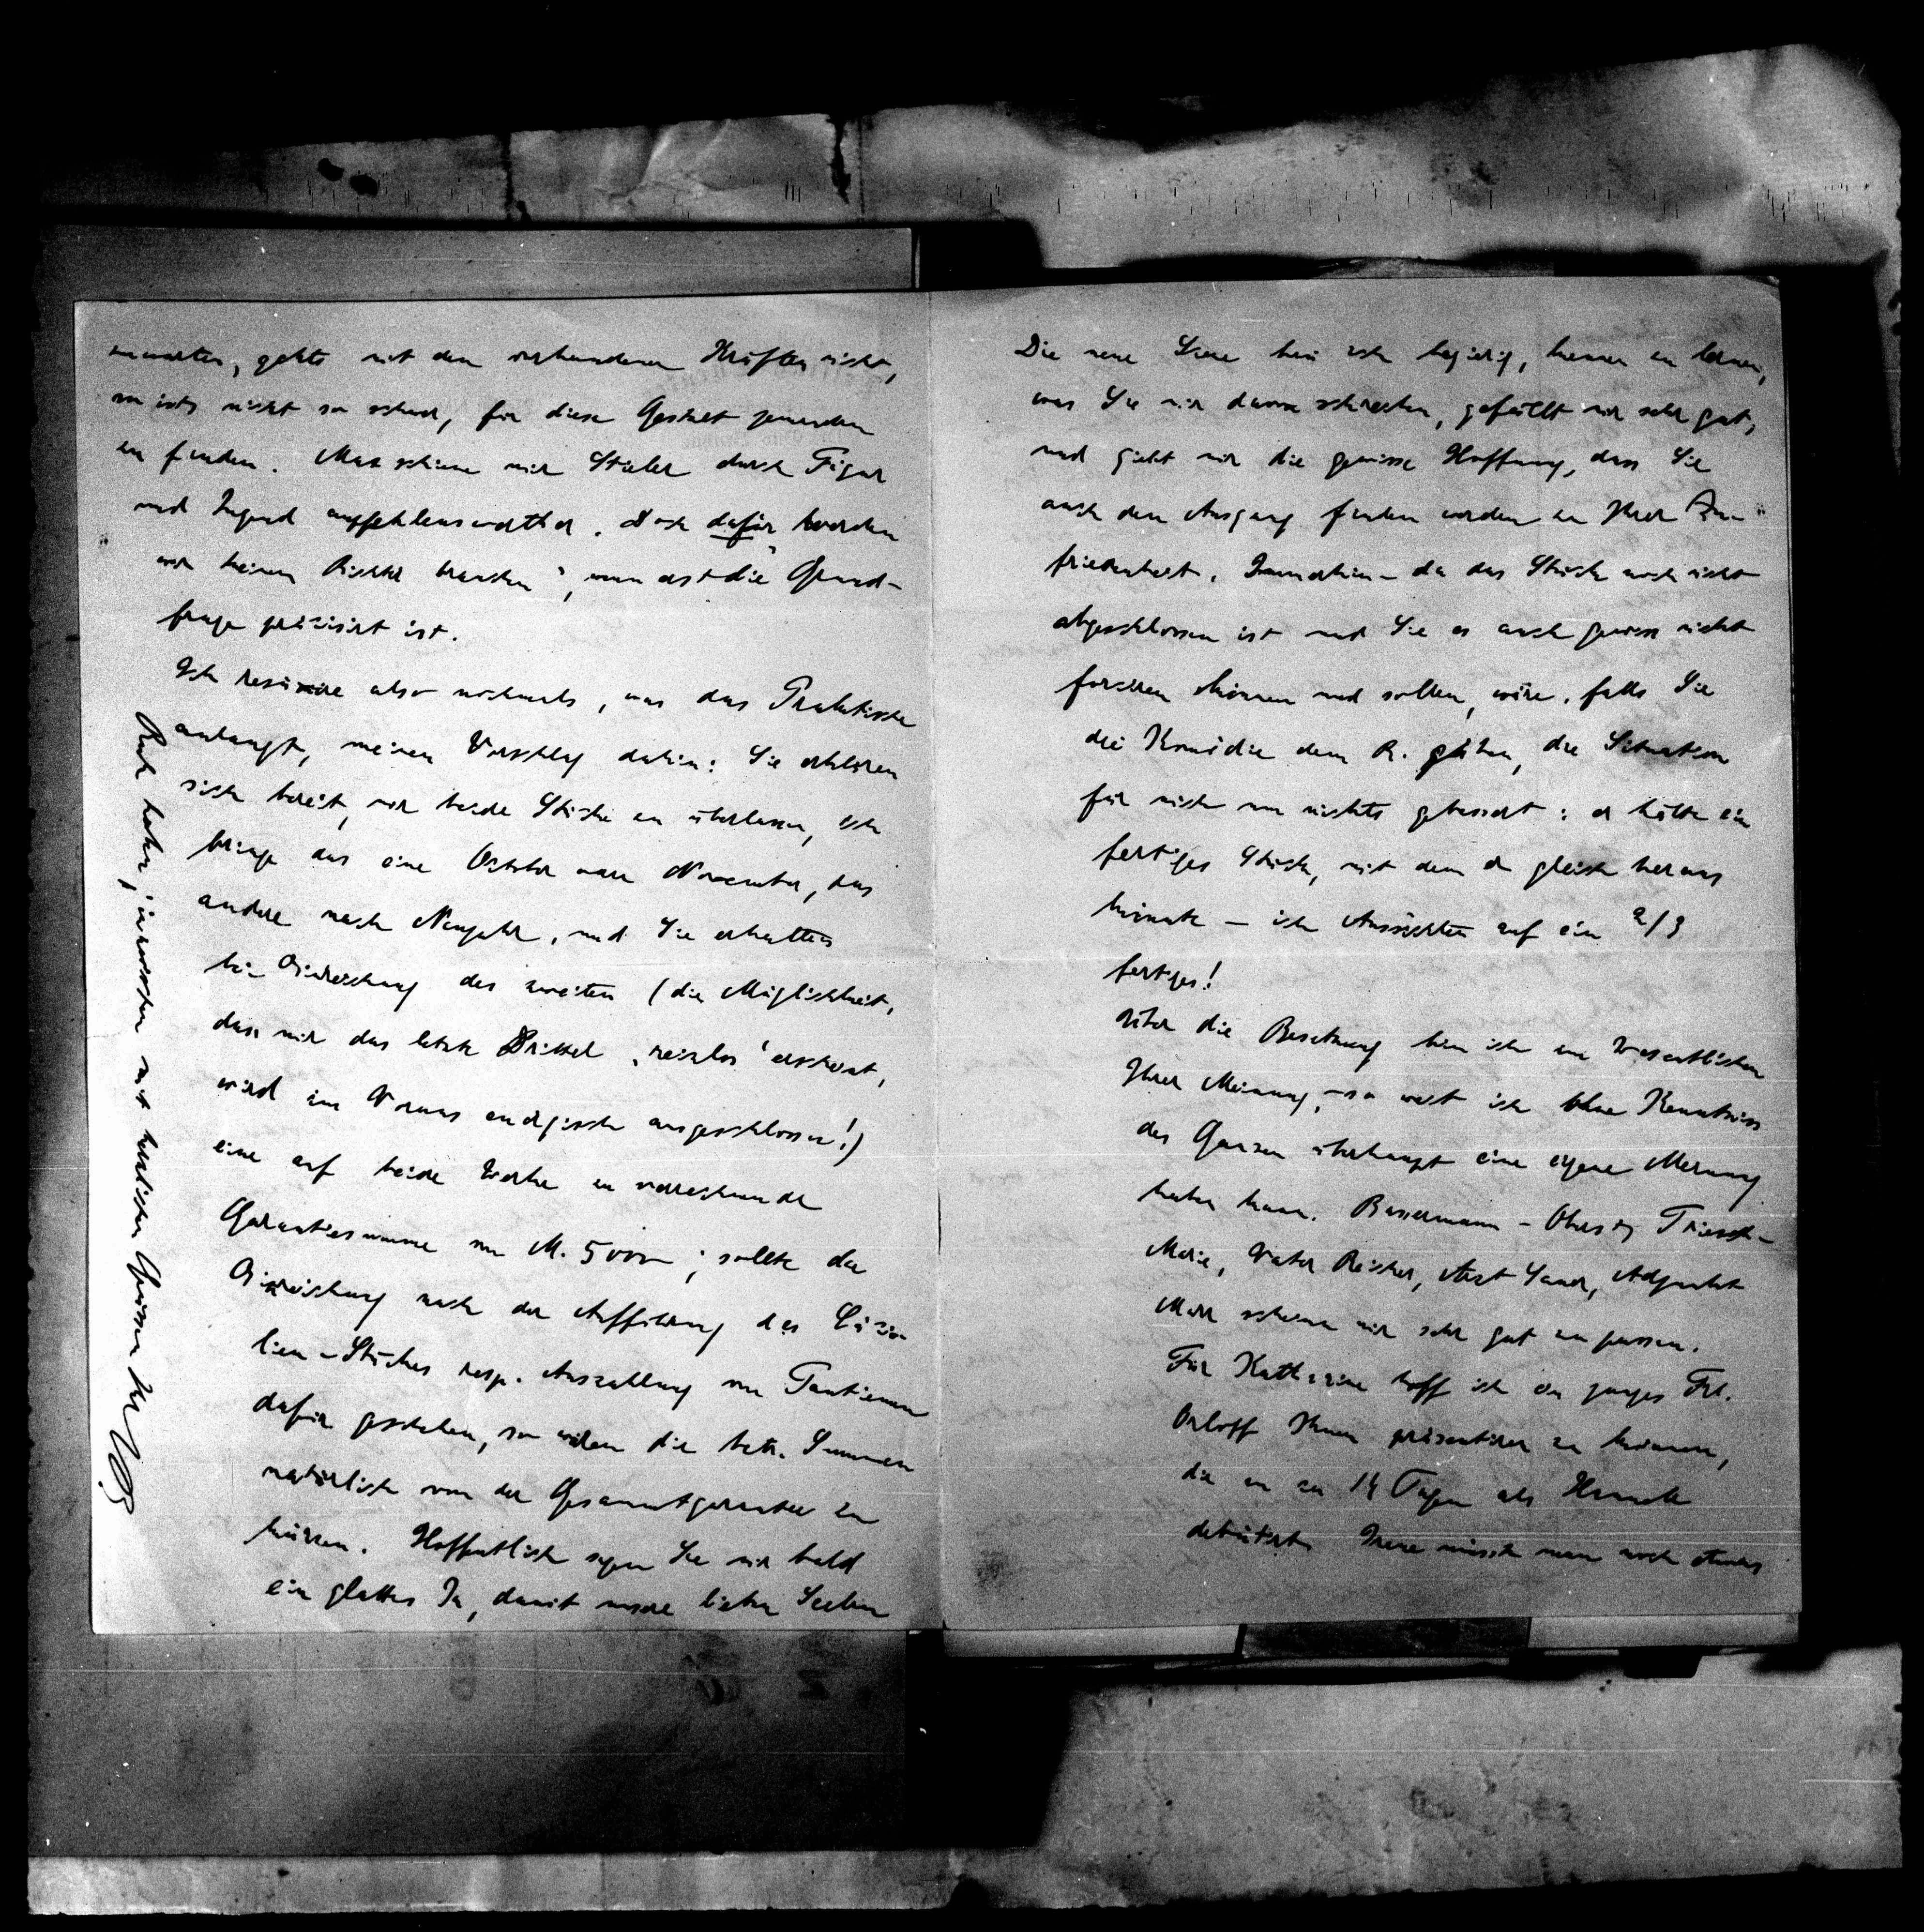 erwarten, gehts mit den vorhandenen Kräften nicht,
so ists nicht so schwer, für diese Gestalt jemanden
zu finden. Max schiene mir Stieler durch Figur
und Jugend empfehlenswerther. Doch dafür werden
wir keinen Richter brauchen, wenn erst die Grund-
frage präcisirt ist.
Ich resümire also nochmals, was das Praktische
anlangt, meinen Vorschlag dahin: Sie erklären
sich bereit, mir beide Stücke zu überlassen, ich
bringe das eine October oder November, das
andere nach Neujahr, und Sie erhalten
bei Einreichung des zweiten (die Möglichkeit,
dass mir das letzte Drittel „reizlos“ erscheint,
wird im Voraus energisch ausgeschlossen!)
eine auf beide Werke zu verrechnende
Garantiesumme von M. 5000; sollte die
Einreichung nach der Aufführung des Cäci-
lien-Stückes resp. Auszahlung von Tantiemen
dafür geschehen, so wären die betr. Summen
natürlich von der Gesammtgarantie zu
kürzen. Hoffentlich sagen Sie mir bald
ein glattes Ja, damit unsere lieben Seelen
Ruh haben; inzwischen mit herzlichen Grüssen Ihr OB
Die neue Scene bin ich begierig, kennen zu lernen,
was Sie mir davon schreiben, gefällt mir sehr gut,
und giebt mir die gewisse Hoffnung, dass Sie
auch den Ausgang finden werden zu Ihrer Zu-
friedenheit. Immerhin – da das Stück noch nicht
abgeschlossen ist und Sie es auch gewiss nicht
forciren können und sollen, wäre, falls Sie
die Komödie dem R. gäben, die Situation
für mich um nichts gebessert: er hätte ein
fertiges Stück, mit dem er gleich heraus
könnte – ich Aussichten auf ein 2/3
fertges!
Über die Besetzung bin ich im Wesentlichen
Ihrer Meinung, – so weit ich ohne Kenntniss
des Ganzen überhaupt eine eigene Meinung
haben kann. Bassermann – Oberst, Triesch –
Marie, Vater Reicher, Arzt Sauer, Adjunkt
Marr scheinen mir sehr gut zu passen.
Für Katharine hoff ich ein junges Frl.
Orloff Ihnen präsentiren zu können,
die in 14 Tagen als Hannele
debütirt. Irene müsste man noch etwas